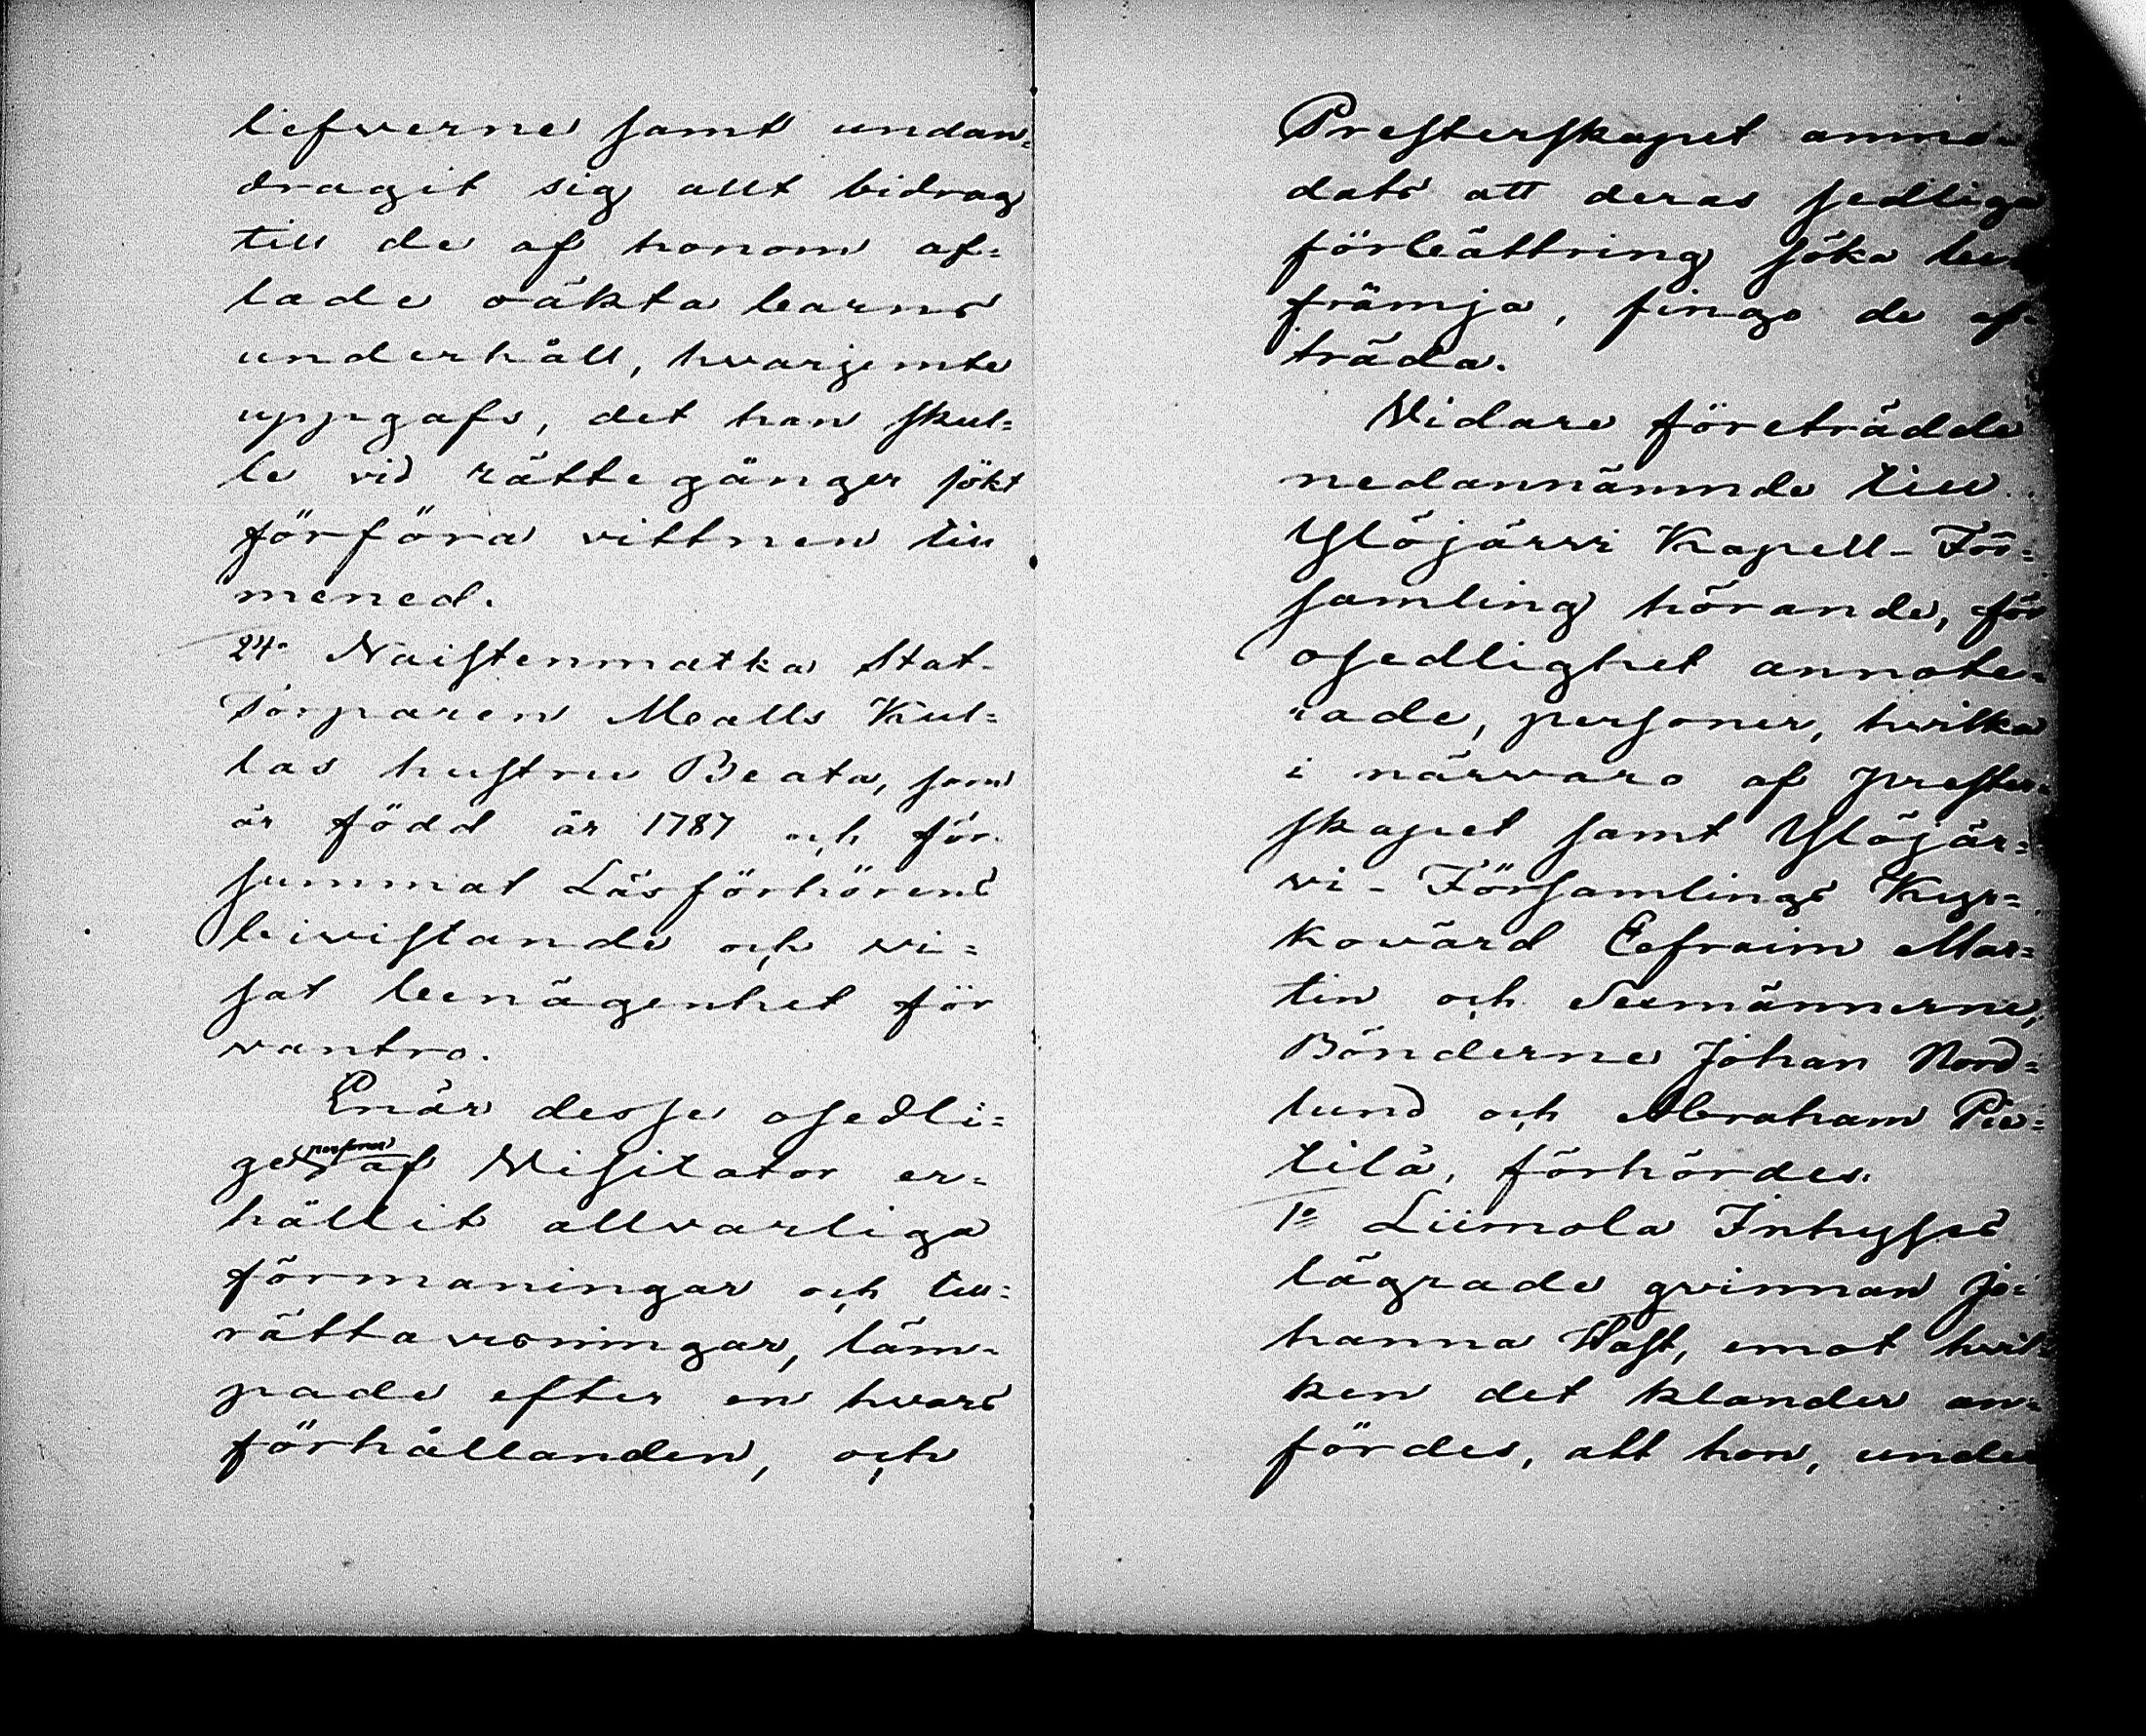 lefverne samt undan=
dragit sig allt bidrag
till de af honom af=
lade oäkta barns
underhåll, hvarjemte
uppgafs, det han skul=
le vid rättegångar sökt
förföra vittnen till
mened.
24o Naistenmatka Stat-
Torparen Matts Kul=
las hustru Beata, som
är född år 1787 och för-
summat Läsförhörens
bivistande och vi=
sat benägenhet för
vantro.
Enär desse osedli=
ge personer af Visitator er=
hållit allvarliga
förmaningar och till=
rättavisningar, läm=
pade efter en hvars
förhållanden, och
Presterskapet anmo=
dats att deras sedliga
förbättring söka be=
främja, fingo de af=
träda.
Vidare företrädde
nedannämnde till
Ylöjärvi Kapell-För=
samling hörande, för
osedlighet annote=
rade, personer, hvilka
i närvaro af prester=
skapet samt Ylöjär=
vi-Församlings Kyr=
kovärd Eefraim Mar=
tin och Sexmännerne,
Bönderne Johan Nord=
lund och Abraham Pie=
tilä, förhördes.
1o Liimola Inhysses
lägrade qvinnan Jo=
hanna Wast, emot hvil=
ken det klander an=
fördes, att hon, under